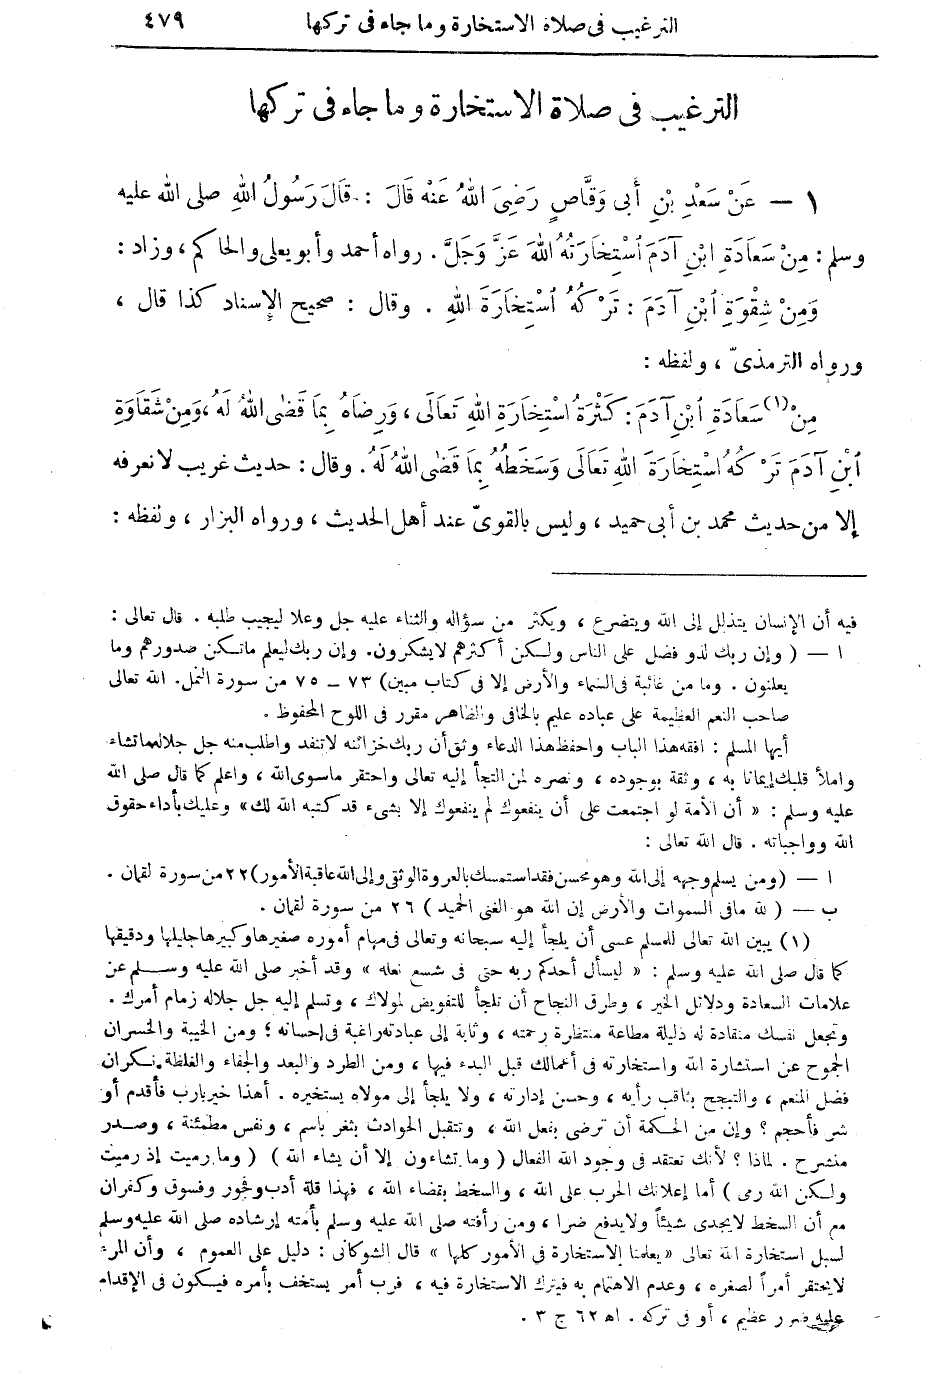 الترغيب فى صلاة الاستخارة وما جاء فى تركها ٤٧٩
الترغيب فى صلاة الاستخارة وما جاء فى تركها
١ — عَنْ سَعْدِ بْنِ أَبِى وَقَّاصٍ رَضِىَ اللهُ عَنْهُ قَالَ : قَالَ رَسُولُ اللهِ صلى الله عليه
وسلم : مِنْ سَعَادَةِ ابْنِ آدَمَ ٱسْتِخَارَتُهُ اللهَ عَزَّ وَجَلَّ . رواه أحمد وأبو يعلى والحاكم ، وزاد :
وَمِنْ شِقْوَةِ ٱبْنِ آدَمَ : تَرْكُهُ ٱسْتِخَارَةَ اللهِ . وقال : صحيح الإسناد كذا قال ،
ورواه الترمذىّ ، ولفظه :
مِنْ (١) سَعَادَةِ ٱبْنِ آدَمَ : كَثْرَةُ اسْتِخَارَةِ اللهِ تَعَالَى ، وَرِضَاهُ بِمَا قَضٰى اللهُ لَهُ ، وَمِنْ شَقَاوَةِ
ٱبْنِ آدَمَ تَرْكُهُ اسْتِخَارَةَ اللهِ تَعَالَى وَسَخَطُهُ بِمَا قَضٰى اللهُ لَهُ . وقال : حديث غريب لا نعرفه
إلا من حديث محمد بن أبى حميد ، وليس بالقوىّ عند أهل الحديث ، ورواه البزار ، ولفظه :
فيه أن الإنسان يتذلل إلى الله ويتضرع ، ويكثر من سؤاله والثناء عليه جل وعلا ليجيب طلبه . قال تعالى :
ا — ( وإن ربك لذو فضل على الناس ولكن أكثرهم لايشكرون . وإن ربك ليعلم ماتكن صدورهم وما
يعلنون . وما من غائبة فى السماء والأرض إلا فى كتاب مبين ) ٧٣ — ٧٥ من سورة النمل . الله تعالى
صاحب النعم العظيمة على عباده عليم بالخافى والظاهر مقرر فى اللوح المحفوظ .
أيها المسلم : افقه هذا الباب واحفظ هذا الدعاء وثق أن ربك خزائنه لاتنفد واطلب منه جل جلاله ماتشاء
واملأ قلبك إيمانا به ، وثقة بوجوده ، ونصره لمن التجأ إليه تعالى واحتقر ماسوى الله ، واعلم كما قال صلى الله
عليه وسلم : « أن الأمة لو اجتمعت على أن ينفعوك لم ينفعوك إلا بشىء قد كتبه الله لك » وعليك بأداء حقوق
الله وواجباته . قال الله تعالى :
ا — (ومن يسلم وجهه إلى الله وهو محسن فقد استمسك بالعروة الوثقى وإلى الله عاقبة الأمور) ٢٢ من سورة لقمان .
ب — ( لله مافى السموات والأرض إن الله هو الغنى الحميد ) ٢٦ من سورة لقمان .
(١) يبين الله تعالى للمسلم عسى أن يلجأ إليه سبحانه وتعالى فى مهام أموره صغيرها وكبيرها جليلها ودقيقها
كما قال صلى الله عليه وسلم : « ليسأل أحدكم ربه حتى فى شسع نعله » وقد أخبر صلى الله عليه وسلم عن
علامات السعادة ودلائل الخير ، وطرق النجاح أن تلجأ للتفويض لمولاك ، وتسلم إليه جل جلاله زمام أمرك .
وتجعل نفسك منقادة له ذليلة مطاعة منتظرة رحمته ، وثابة إلى عبادته راغبة فى إحسانه ؛ ومن الخيبة والخسران
الجموح عن استشارة الله واستخارته فى أعمالك قبل البدء فيها ، ومن الطرد والبعد والجفاء والغلظة نكران
فضل المنعم ، والتبجح بثاقب رأيه ، وحسن إدارته ، ولا يلجأ إلى مولاه يستخيره . أهذا خير يارب فأقدم أو
شر فأحجم ؟ وإن من الحكمة أن ترضى بفعل الله ، وتتقبل الحوادث بثغر باسم ، ونفس مطمئنة ، وصدر
منشرح . لماذا ؟ لأنك تعتقد فى وجود الله الفعال ( وما تشاءون إلا أن يشاء الله ) ( وما رميت إذ رميت
ولكن الله رمى ) أما إعلانك الحرب على الله ، والسخط بقضاء الله ، فهذا قلة أدب وفجور وفسوق وكفران
مع أن السخط لايجدى شيئاً ولايدفع ضرا ، ومن رأفته صلى الله عليه وسلم بأمته إرشاده صلى الله عليه وسلم
لسبل استخارة الله تعالى « يعلمنا الاستخارة فى الأمور كلها » قال الشوكانى : دليل على العموم ، وأن المرء
لايحتقر أمراً لصغره ، وعدم الاهتمام به فيترك الاستخارة فيه ، فرب أمر يستخف بأمره فيكون فى الإقدام
عليه ضرر عظيم ، أو فى تركه . اهـ ٦٢ ج ٣ .